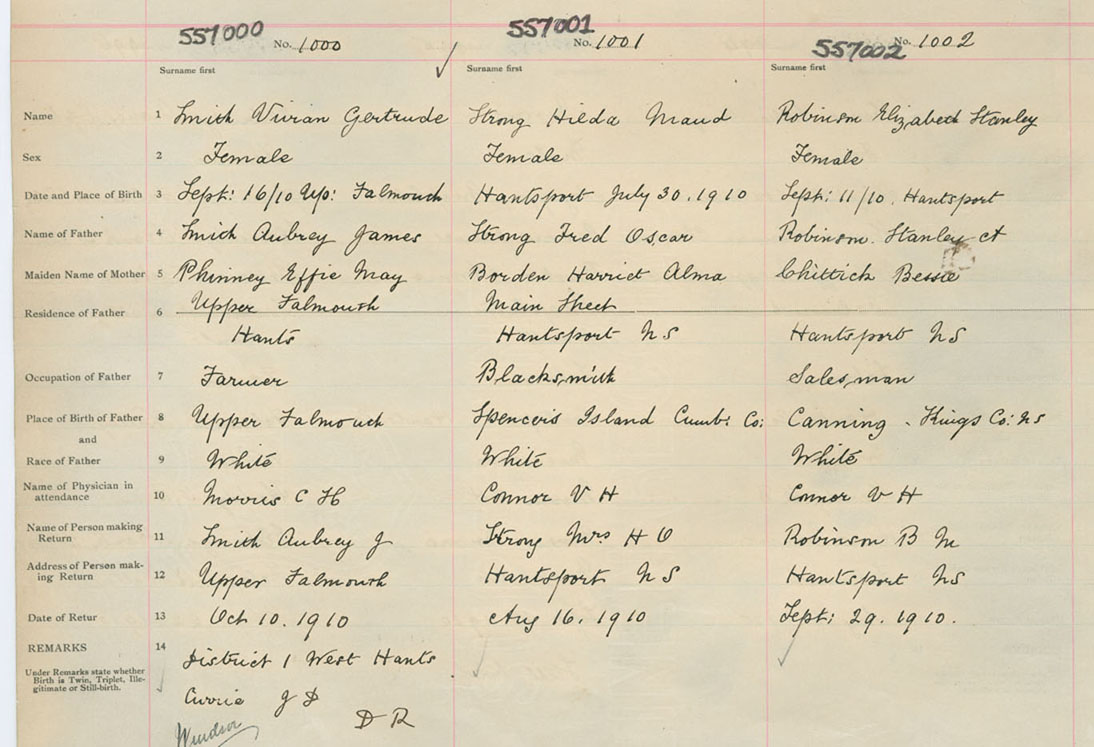 557000 No. 1000 557001 No. 1001 557002 No. 1002
Surname first Surname first Surname first
Name 1 Smith Vivian Gertrude Strong Hilda Maud Robinson Elizabeth Stanley
Sex 2 Female Female Female
Date and Place of Birth 3 Sept: 16/10 Up: Falmouth Hantsport July 30. 1910 Sept: 11/10. Hantsport
Name of Father 4 Smith Aubrey James Strong Fred Oscar Robinson. Stanley A
Maiden Name of Mother 5 Phinney Effie May Borden Harriet Alma Chittick Bessie
Residence of Father 6 Upper Falmouth Main Street
Hants Hantsport NS Hantsport NS
Occupation of Father 7 Farmer Blacksmith Salesman
Place of Birth of Father 8 Upper Falmouth Spencer's Island Cumb: Co: Canning - Kings Co: NS
and
Race of Father 9 White White White
Name of Physician in
attendance 10 Morris C H Connor V H Connor V H
Name of Person making
Return 11 Smith Aubrey J Strong Mrs H O Robinson B M
Address of Person mak-
ing Return 12 Upper Falmouth Hantsport NS Hantsport NS
Date of Retur 13 Oct 10. 1910 Aug 16. 1910 Sept: 29. 1910.
REMARKS 14 District 1 West Hants
Under Remarks state whether
Birth is Twin, Triplet, Ille-
gitimate or Still-birth.
Currie J D
D R
Windsor